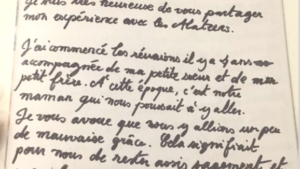 Je suis très heureuse de vous partager
mon expérience avec les Alateens.
J'ai commencé les réunions il y a 4 ans
accompagnée de ma petite sœur et de mon
petit frère. A cette époque, c'est notre
maman qui nous poussait à y aller.
Je vous avoue que nous y allions un peu
de mauvaise grâce. Cela signifiait
pour nous de rester assis sagement et